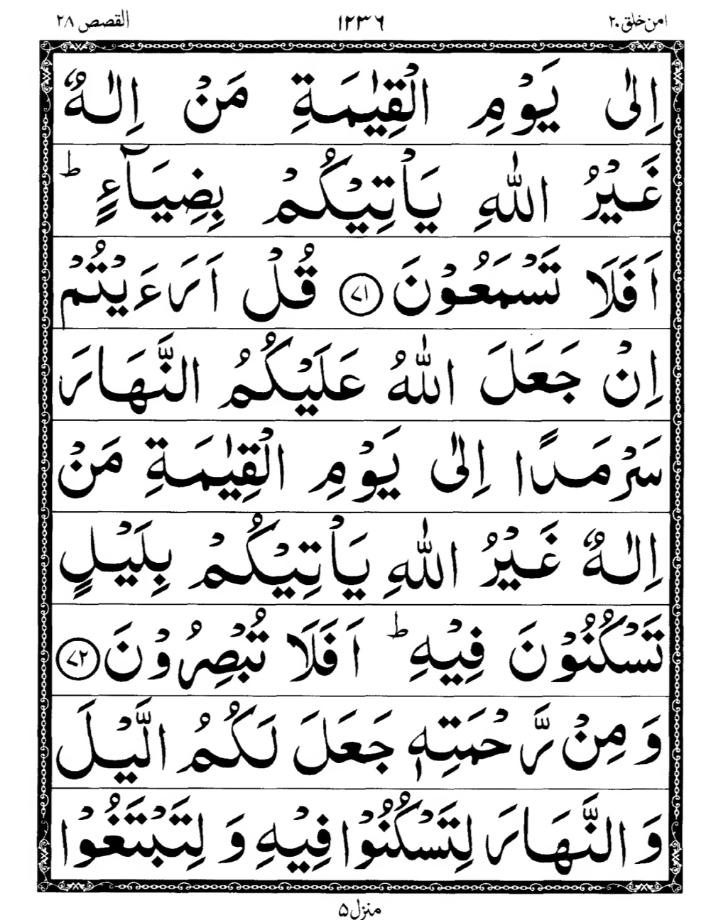 القصص ٢٨ ١٢٣٦ امن خلق ٢٠
اِلٰى يَوْمِ الْقِيٰمَةِ مَنْ اِلٰهٌ
غَيْرُ اللّٰهِ يَاْتِيْكُمْ بِضِيَآءٍ ؕ
اَفَلَا تَسْمَعُوْنَ ﴿٧١﴾ قُلْ اَرَءَيْتُمْ
اِنْ جَعَلَ اللّٰهُ عَلَيْكُمُ النَّهَارَ
سَرْمَدًا اِلٰى يَوْمِ الْقِيٰمَةِ مَنْ
اِلٰهٌ غَيْرُ اللّٰهِ يَاْتِيْكُمْ بِلَيْلٍ
تَسْكُنُوْنَ فِيْهِ ؕ اَفَلَا تُبْصِرُوْنَ ﴿٧٢﴾
وَ مِنْ رَّحْمَتِهٖ جَعَلَ لَكُمُ الَّيْلَ
وَ النَّهَارَ لِتَسْكُنُوْا فِيْهِ وَ لِتَبْتَغُوْا
منزل ۵